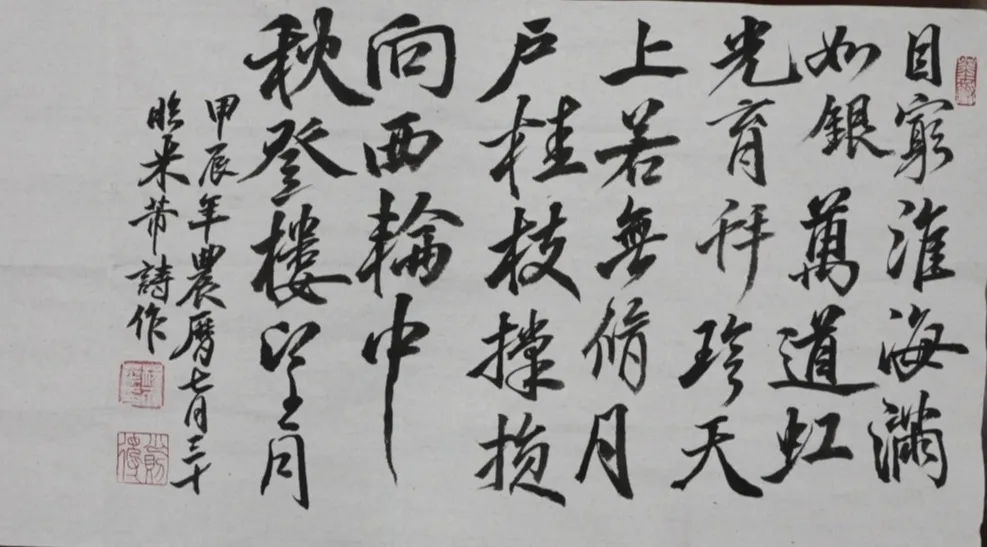 目窮淮海滿
如銀萬道虹
光育蚌珍天
上若無脩月
戶桂枝撐損
向西輪中
秋登樓望月
甲辰年農曆七月三十
臨米芾詩作